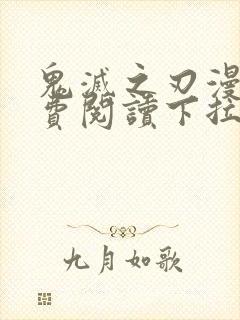 鬼滅之刃漫
費閱讀下拉
九月如歌